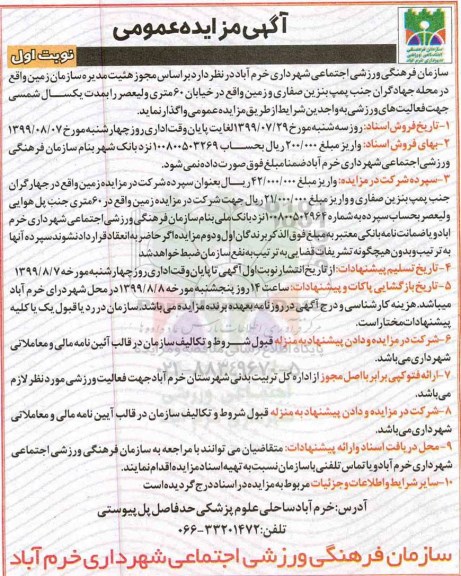 آگهی مزایده عمومی
نوبت اول
سازمان فرهنگی ورزشی اجتماعی شهرداری خرم آباد در نظر دارد بر اساس مجوز هئیت مدیره سازمان زمین واقع
در محله جهادگران جنب پمپ بنزین صفاری و زمین واقع در خیابان ۶۰ متری ولیعصر را بمدت یکسال شمسی
جهت فعالیت‌های ورزشی به واجدین شرایط از طریق مزایده عمومی واگذار نماید.
۱- تاریخ فروش اسناد: روز سه شنبه مورخ ۱۳۹۹/۰۷/۲۹ لغایت پایان وقت اداری روز چهارشنبه مورخ ۱۳۹۹/۰۸/۰۷
۲- بهای فروش اسناد: واریز مبلغ ۲۰۰/۰۰۰ ریال بحساب ۱۰۰۸۰۰۵۰۳۲۶۹ نزد بانک شهر بنام سازمان فرهنگی
ورزشی اجتماعی شهرداری خرم آباد ضمنا مبلغ فوق صورت داده نمی شود.
۳- سپرده شرکت در مزایده: واریز مبلغ ۴۲/۰۰۰/۰۰۰ ریال بعنوان سپرده شرکت در مزایده زمین واقع در جهارگران
جنب پمپ بنزین صفاری و واریز مبلغ ۲۱/۰۰۰/۰۰۰ ریال جهت شرکت در مزایده زمین واقع در ۶۰ متری جنب پل هوایی
ولیعصر بحساب سپرده به شماره ۱۰۰۸۰۰۵۰۲۹۶۴ نزد بانک ملی بنام سازمان فرهنگی ورزشی اجتماعی شهرداری خرم
اباد و یا ضمانت نامه بانکی معتبر به مبلغ فوق الذکر برندگان اول و دوم مزایده اگر حاضر به انعقاد قرارداد نشوند سپرده آنها
به ترتیب و بدون هیچگونه تشریفات قضایی به ترتیب به نفع سازمان ضبط خواهد شد
۴- تاریخ تسلیم پیشنهادات: از تاریخ انتشار نوبت اول آگهی تا پایان وقت اداری روز چهارشنبه مورخه ۱۳۹۹/۸/۷
۵- تاریخ بازگشایی پاکات و پیشنهادات: ساعت ۱۴ روز پنجشنبه مورخه ۱۳۹۹/۸/۸ در محل شهرداری خرم آباد
میباشد. هزینه کارشناسی و درج آگهی در روزنامه بعهده برنده مزایده می باشد. سازمان در رد یا قبول یک یا کلیه
پیشنهادات مختار است.
۶- شرکت در مزایده و دادن پیشنهاد به منزله قبول شروط و تکالیف سازمان در قالب آئین نامه مالی و معاملاتی
شهرداری می باشد.
۷- ارائه فتوکپی برابر با اصل مجوز از اداره کل تربیت بدنی شهرستان خرم آباد جهت فعالیت ورزشی مورد نظر لازم
می باشد.
۸- شرکت در مزایده و دادن پیشنهاد به منزله قبول شروط و تکالیف سازمان در قالب آیین نامه مالی و معاملاتی
شهرداری می باشد.
۹- محل دریافت اسناد و ارائه پیشنهادات: متقاضیان می توانند با مراجعه به سازمان فرهنگی ورزشی اجتماعی
شهرداری خرم آباد و یا تماس تلفنی با سازمان نسبت به تهیه اسناد مزایده اقدام نمایند.
۱۰- سایر شرایط و اطلاعات و جزییات مربوط به مزایده در اسناد درج گردیده است
آدرس: خرم آباد ساحلی علوم پزشکی حد فاصل پل پیوستی
تلفن: ۳۳۲۰۱۴۷۲-۰۶۶
سازمان فرهنگی ورزشی اجتماعی شهرداری خرم آباد